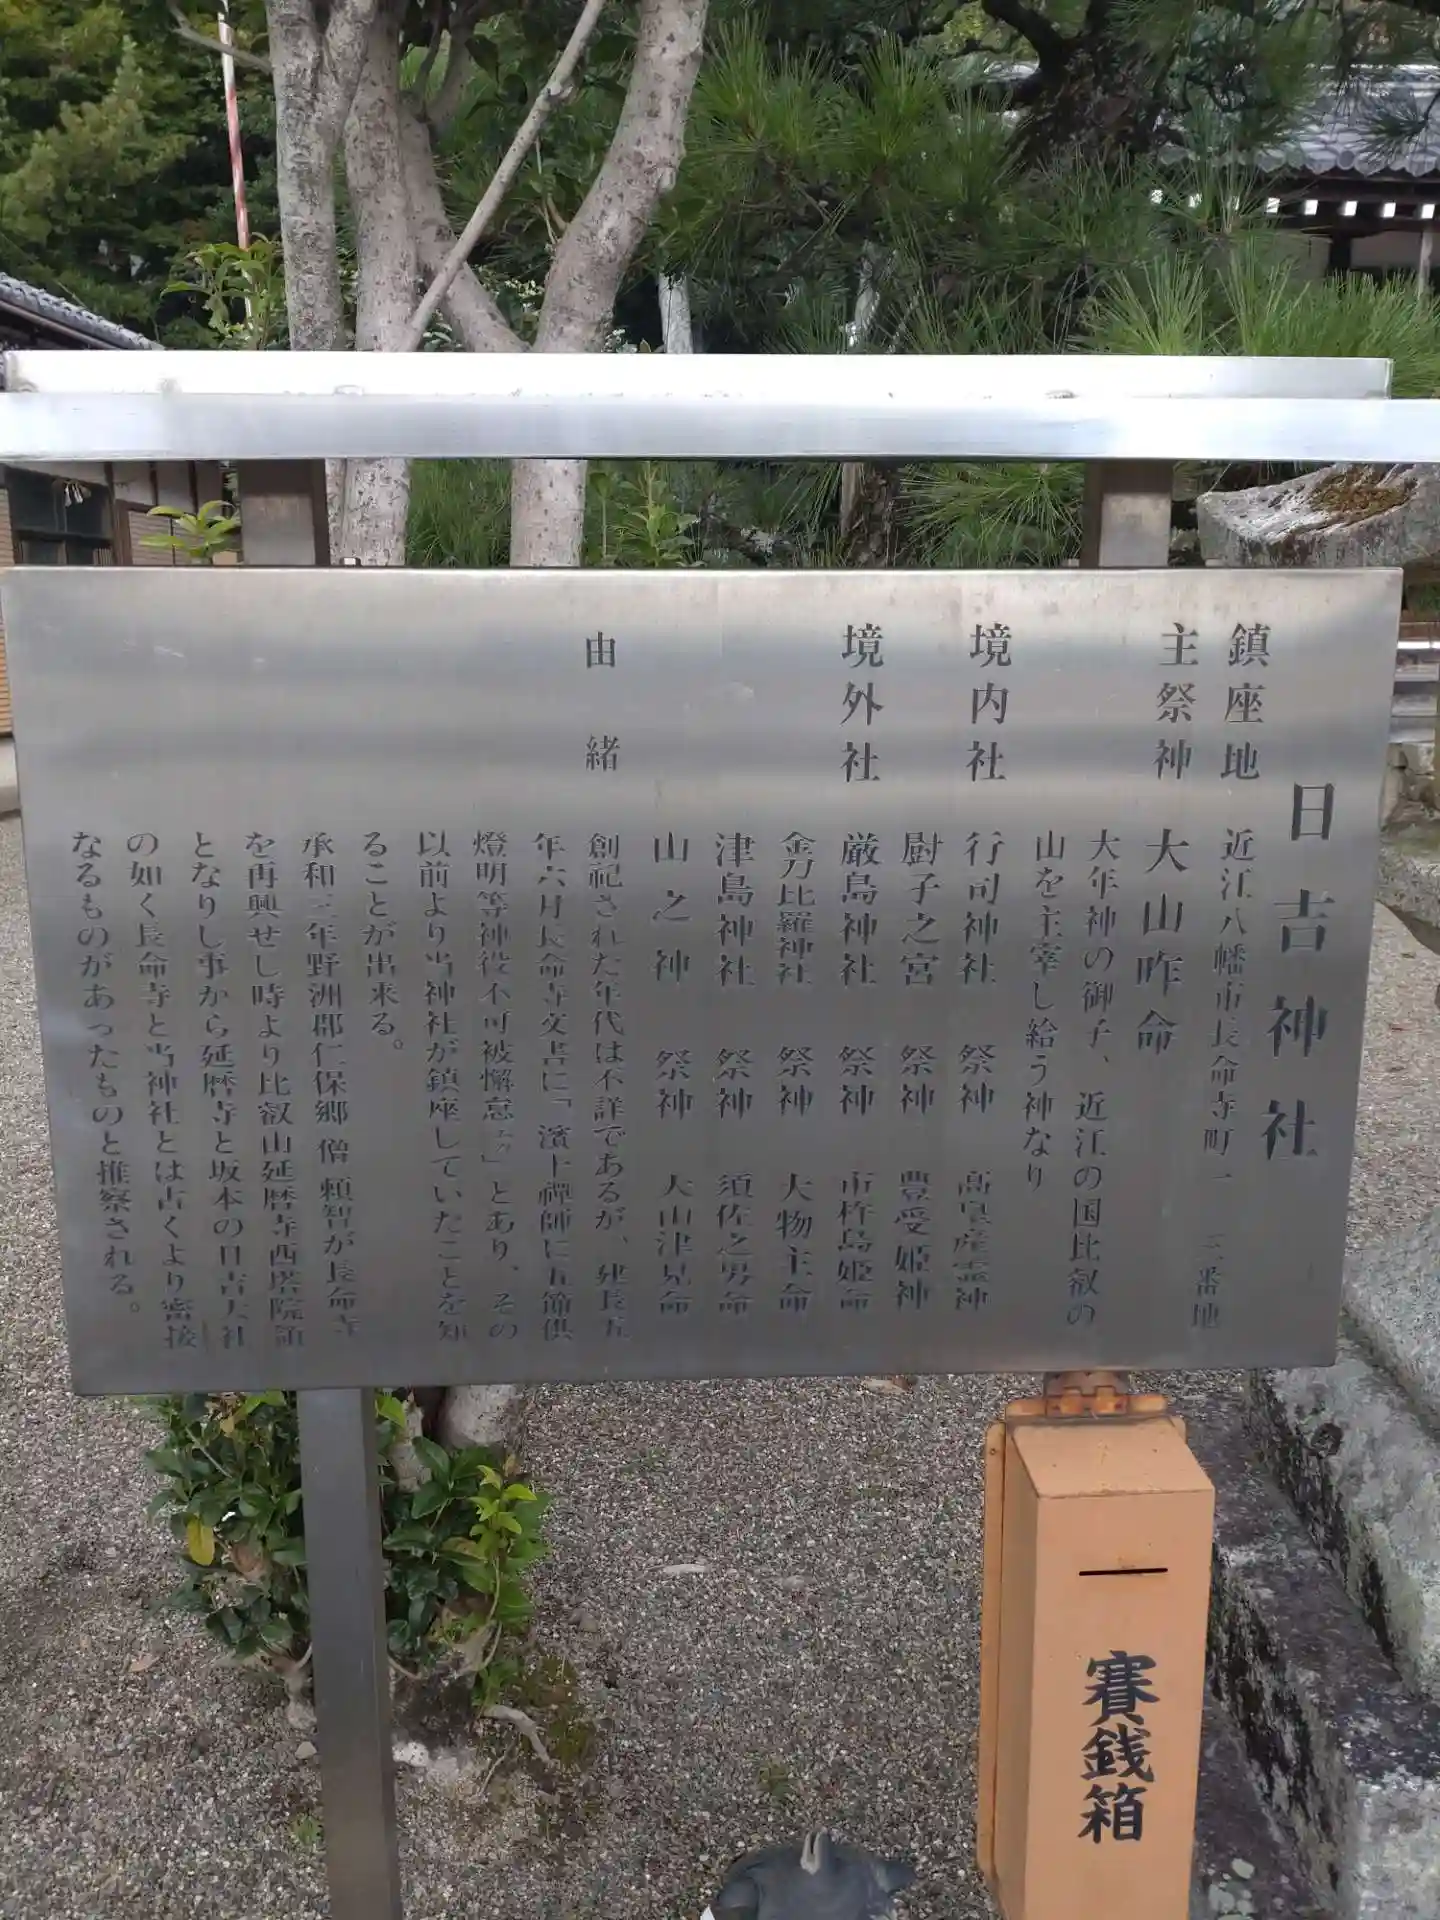 日吉神社
鎮座地 近江八幡市長命寺町一 三番地
主祭神 大山咋命
大年神の御子、近江の国比叡の
山を主宰し給う神なり
境内社 行司神社 祭神 高皇産霊神
厨子之宮 祭神 豊受姫神
境外社 厳島神社 祭神 市杵島姫命
金刀比羅神社 祭神 大物主命
津島神社 祭神 須佐之男命
山之神 祭神 大山津見命
由緒 創祀された年代は不詳であるが、建長五
年六月長命寺文書に「濱上禪師に五節供
燈明等神役不可被懈怠」とあり、その
以前より当神社が鎮座していたことを知
ることが出来る。
承和三年野洲郡仁保郷 僧 頼智が長命寺
を再興せし時より比叡山延暦寺西塔院領
となりし事から延暦寺と坂本の日吉大社
の如く長命寺と当神社とは古くより密接
なるものがあったものと推察される。
賽銭箱